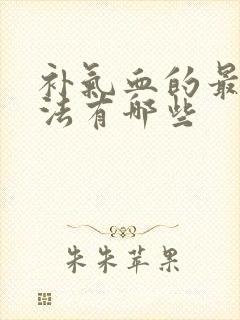 补氣血的最
法有哪些
朱朱苹果